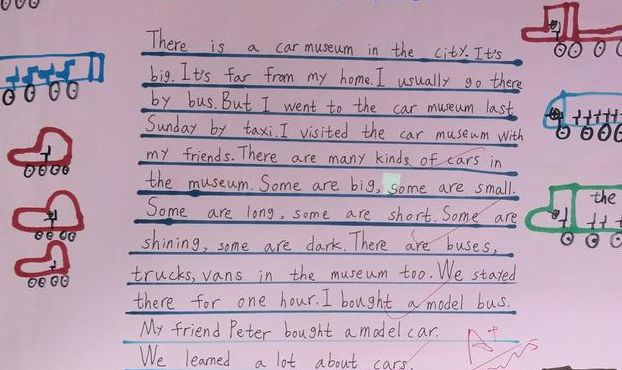 There is a car museum in the city. It's
big. It's far from my home. I usually go there
by bus. But I went to the car museum last
Sunday by taxi. I visited the car museum with
my friends. There are many kinds of cars in
the museum. Some are big, some are small.
Some are long, some are short. Some are
shining, some are dark. There are buses,
trucks, vans in the museum too. We stayed
there for one hour. I bought a model bus.
My friend Peter bought a model car.
We learned a lot about cars.
A+
the